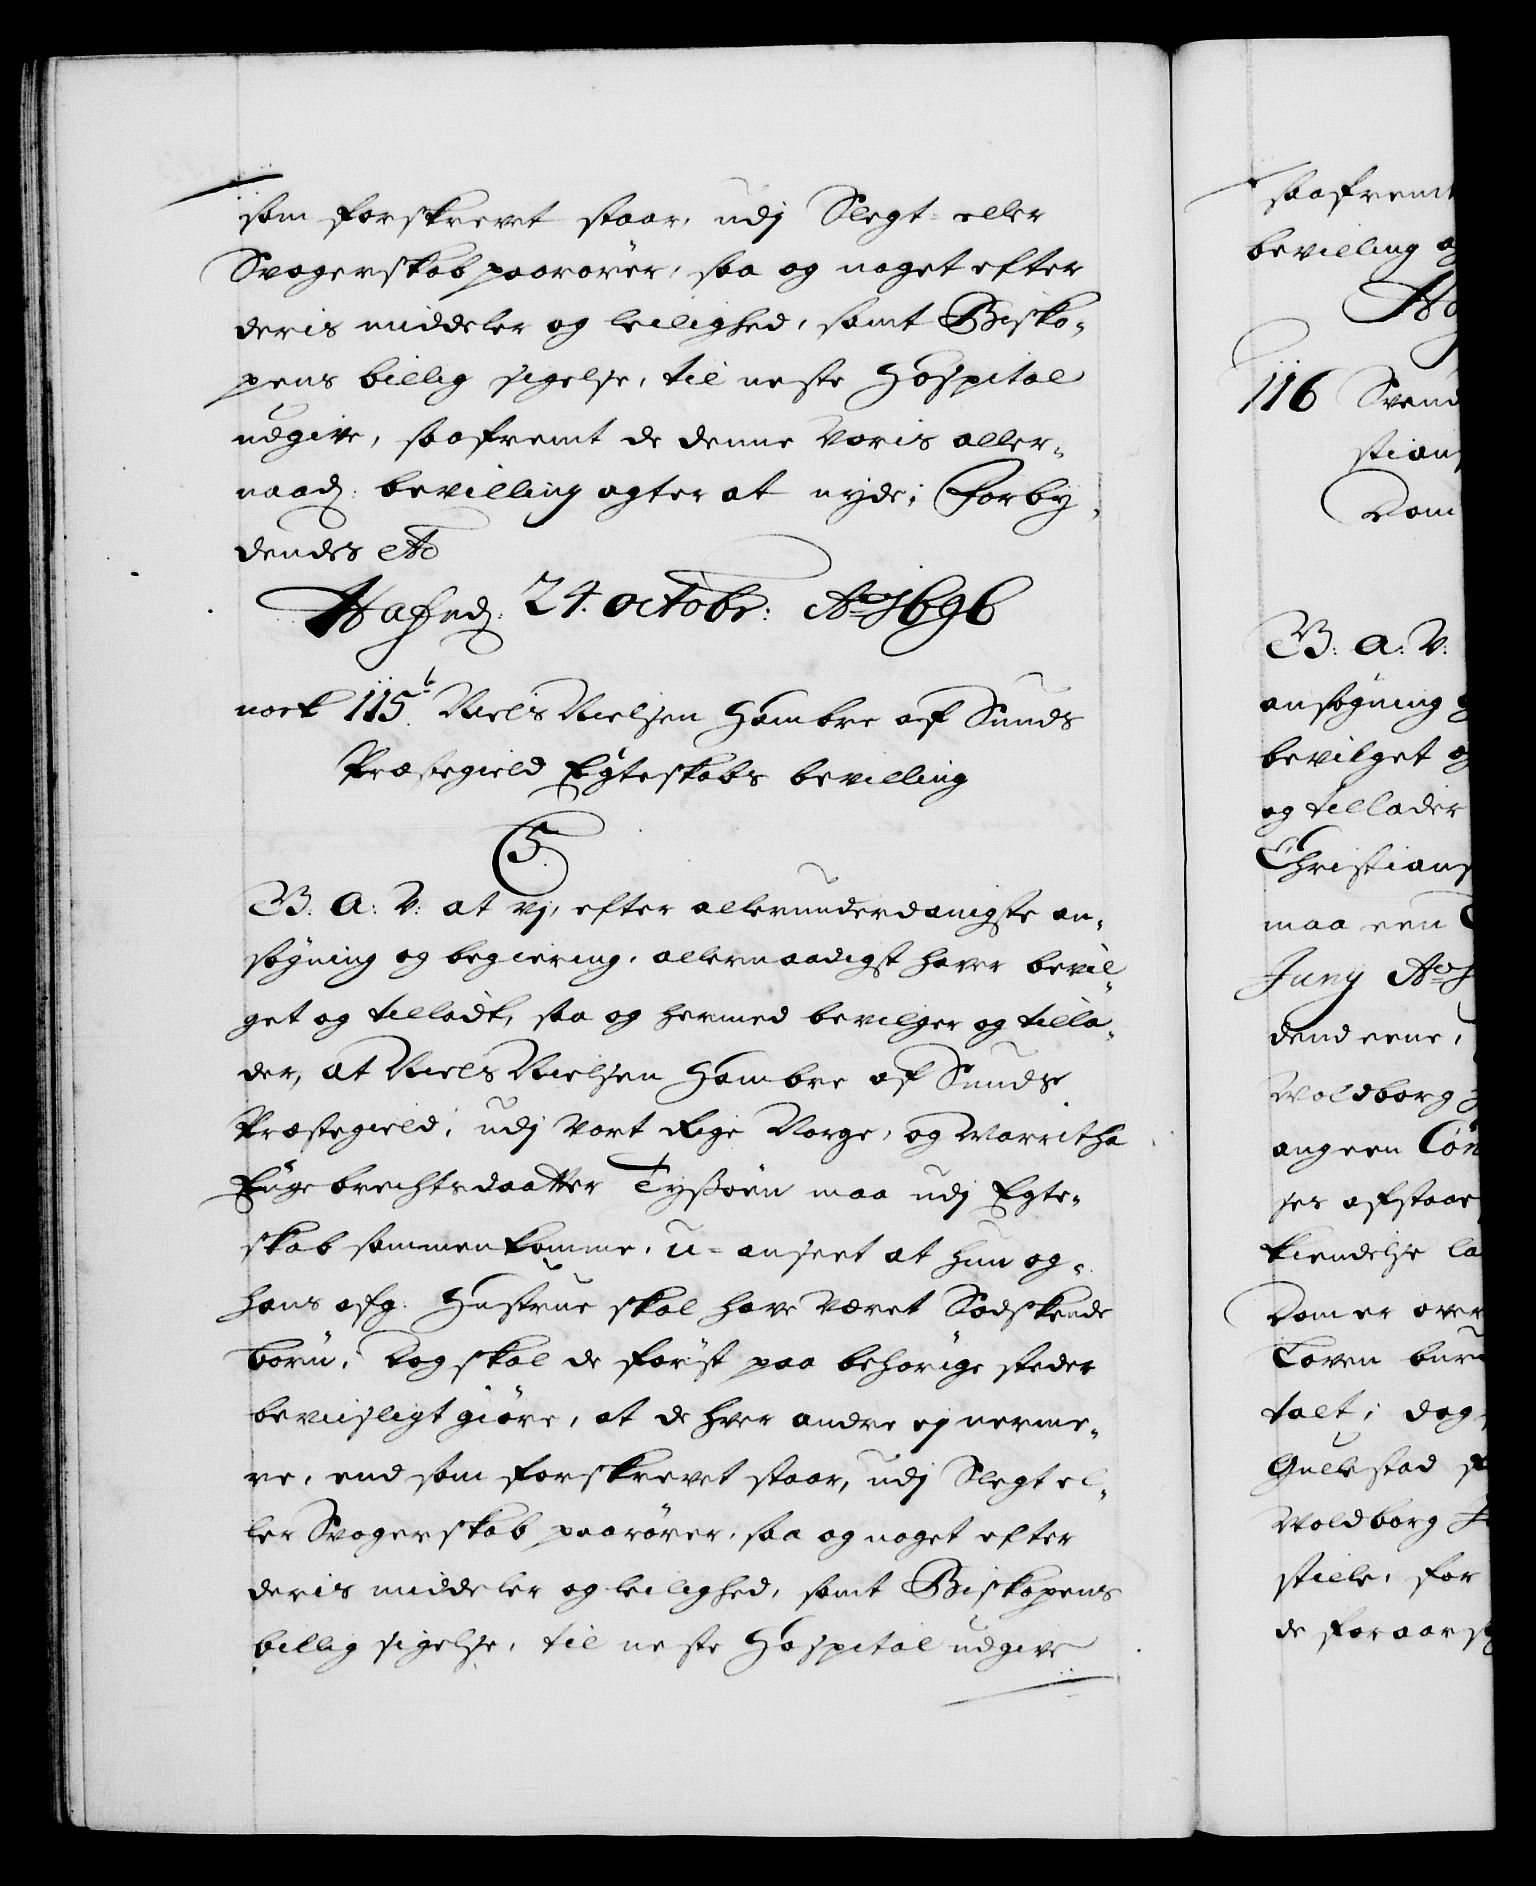 som forskrevet staar, udj Slegt- eller
Svogerskab paarörer, saa og noget efter
deris middeler og leilighed, samt Bisko-
pens billig sigelse, til neste Hospital
udgive, saafremt de denne Voris aller-
naad: bevilling agter at nyde; Forby-
dendes etc
Hafnæ: 24. octobr: Ao 1696
nock 115. b Niels Nielsen Hombre af Sunds
Præstegield Egteskabs bevilling
5.
V. A: V: at vj, efter allerunderdanigste an-
sögning og begiering, allernaadigst haver bevil-
get og tilladt, saa og hermed bevilger og tilla-
der, at Niels Nielsen Hombre af Sunds
Præstegield, udj vort Rige Norge, og Marritha
Engebrechtsdaatter Tyssöen maa udj Egte-
skab sammenkomme, u-anseet at hun og
hans afg: Hustrue skal have været Södskende
börn, Dog skal de först paa behörige steder
beviisligt giöre, at de hver andre ej nerme-
re, end som forskrevet staar, udj Slegt el-
ler Svogerskab paarörer, saa og noget efter
deris middeler og leilighed, samt Biskopens
billig sigelse, til neste Hospital udgive
saafremt
bevilling
116 Svend
Dom
V: A: V:
ansögning
bevilget og
og tillader
Christians
maa een
Juny Ao
dend eene,
Woldborg
ang een
ses afstaae
kiendelse
Domer over
Loven
talt; dog
Gullestad
Woldborg
stille, for
de foraars